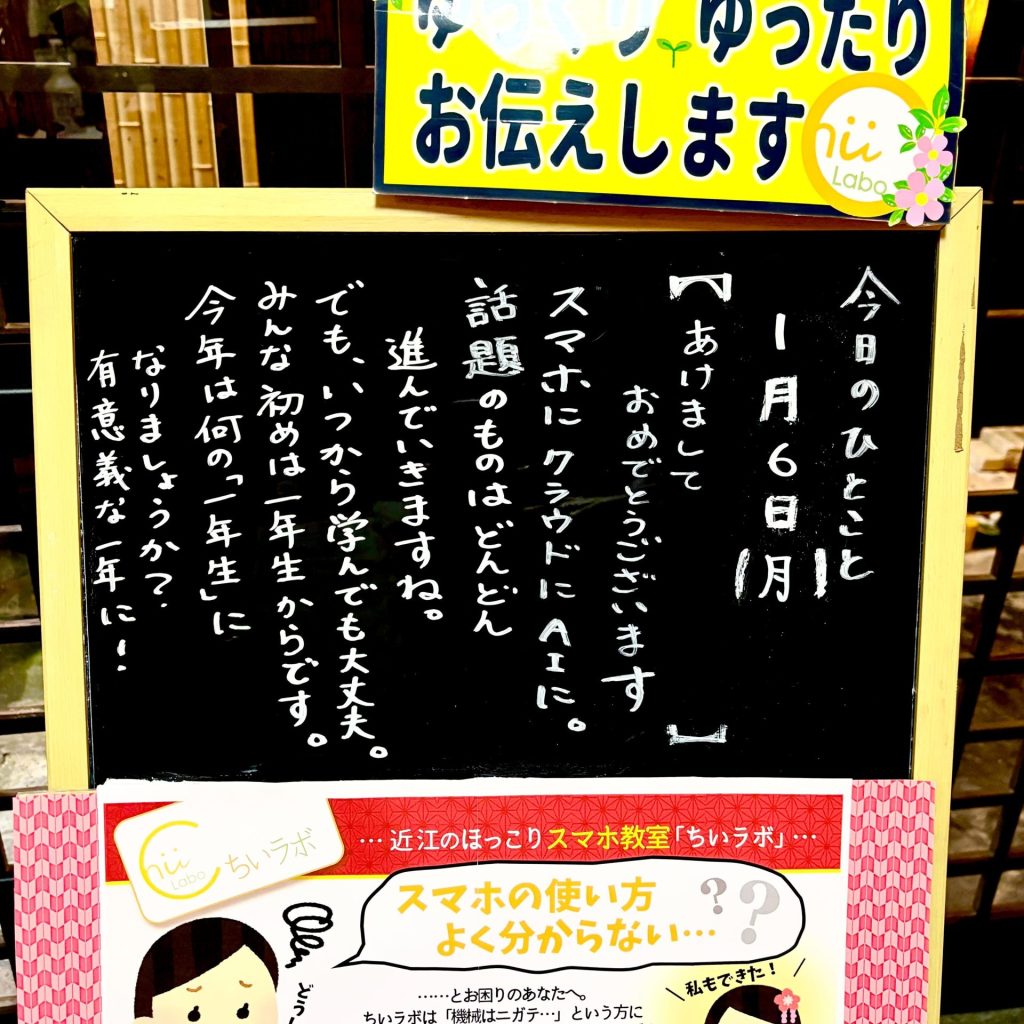 ゆっくり ゆったり
お伝えします
hii
Labo
今日のひとこと
1月6日(月)
【あけまして
おめでとうございます】
スマホにクラウドにAIに。
話題のものはどんどん
進んでいきますね。
でも、いつから学んでも大丈夫。
みんな初めは一年生からです。
今年は何の「一年生」に
なりましょうか?
有意義な一年に!
Chii
Labo
ちいラボ
…近江のほっこりスマホ教室「ちいラボ」…
スマホの使い方
よく分からない…
??
……とお困りのあなたへ。
ちいラボは「機械はニガテ…」という方に
どう
私もできた!